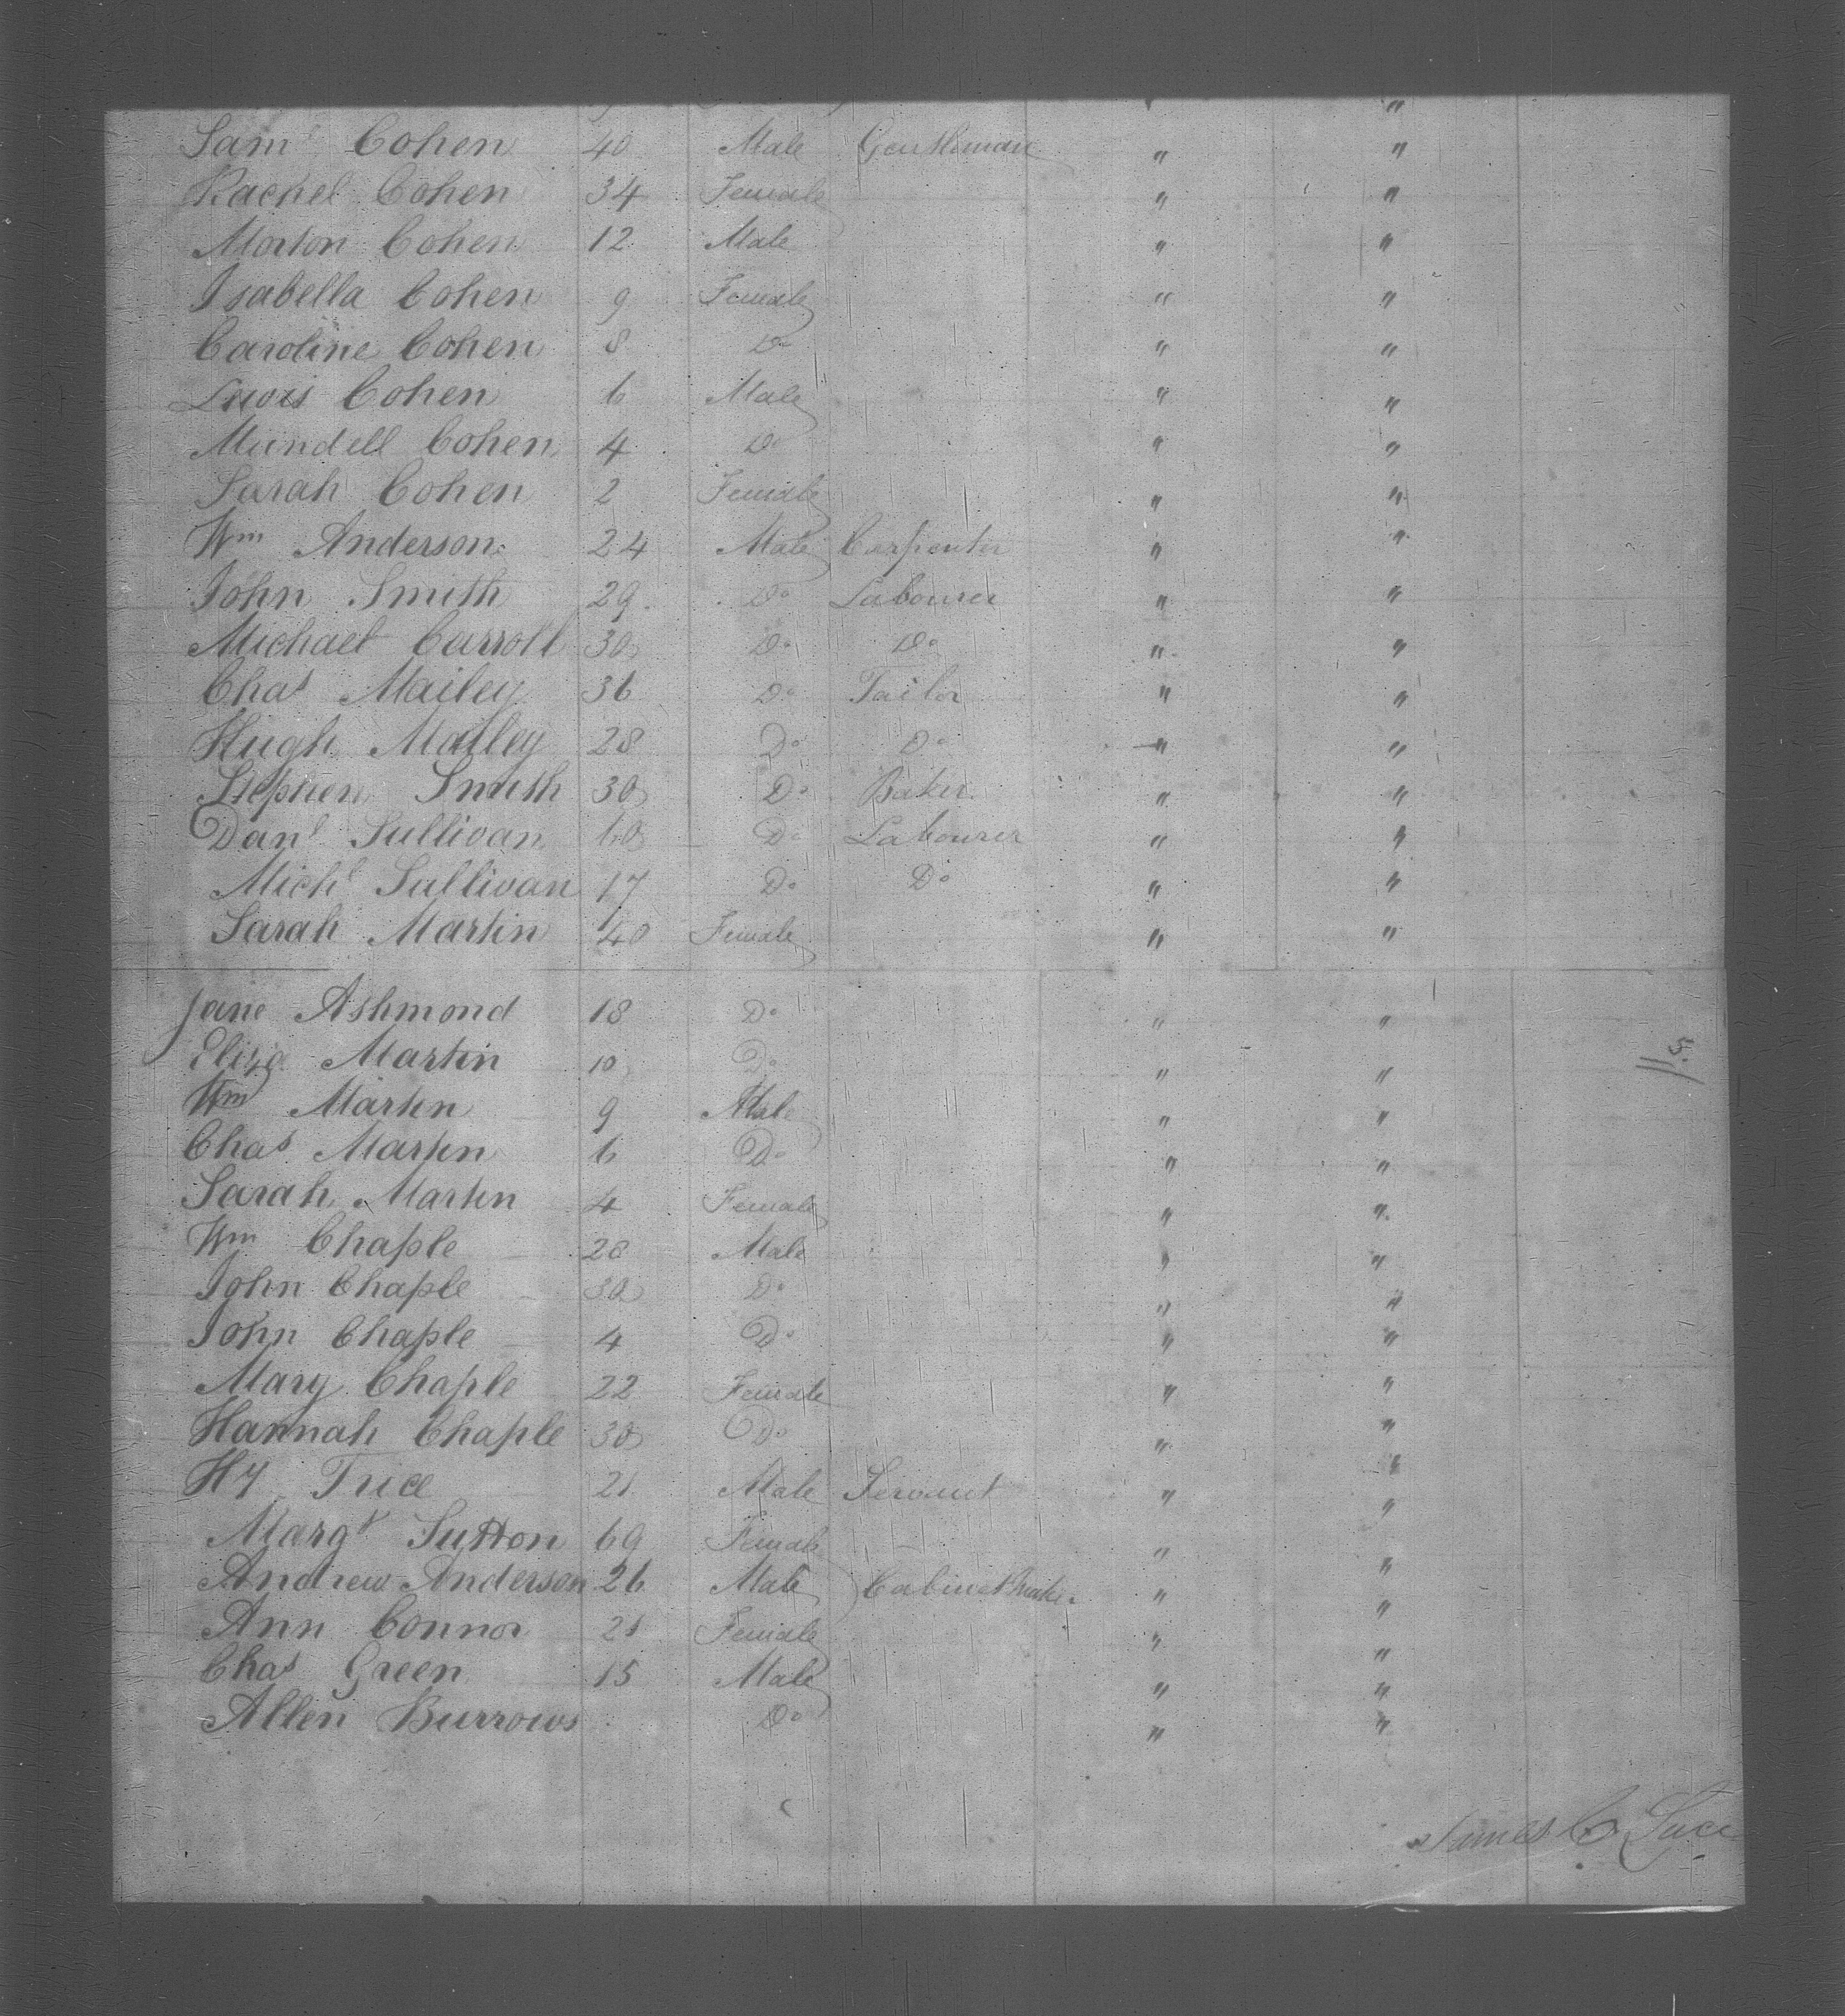 Saml Cohen 40 Male Gentleman " "
Rachel Cohen 34 Female " "
Morton Cohen 12 Male " "
Isabella Cohen 9 Female " "
Caroline Cohen 8 Do " "
Lewis Cohen 6 Male " "
Mundell Cohen 4 Do " "
Sarah Cohen 2 Female " "
Wm Anderson 24 Male Carpenter " "
John Smith 29 Do Labourer " "
Michael Carroll 30 Do Do " "
Chas Mailey 36 Do Tailor " "
Hugh Mailey 28 Do Do " "
Stephen Smith 30 Do Baker " "
Danl Sullivan 60 Do Labourer " "
Michl Sullivan 17 Do Do " "
Sarah Martin 40 Female " "
Jane Ashmond 18 Do " "
Eliza Martin 10 Do " "
Wm Martin 9 Male " "
Chas Martin 6 Do " "
Sarah Martin 4 Female " "
Wm Chaple 28 Male " "
John Chaple 30 Do " "
John Chaple 4 Do " "
Mary Chaple 22 Female " "
Hannah Chaple 30 Do " "
Hy Trice 21 Male Servant " "
Margt Sutton 69 Female " "
Andrew Anderson 26 Male Cabinet Maker " "
Ann Connor 21 Female " "
Chas Green 15 Male " "
Allen Burrows Do " "
James C Luce